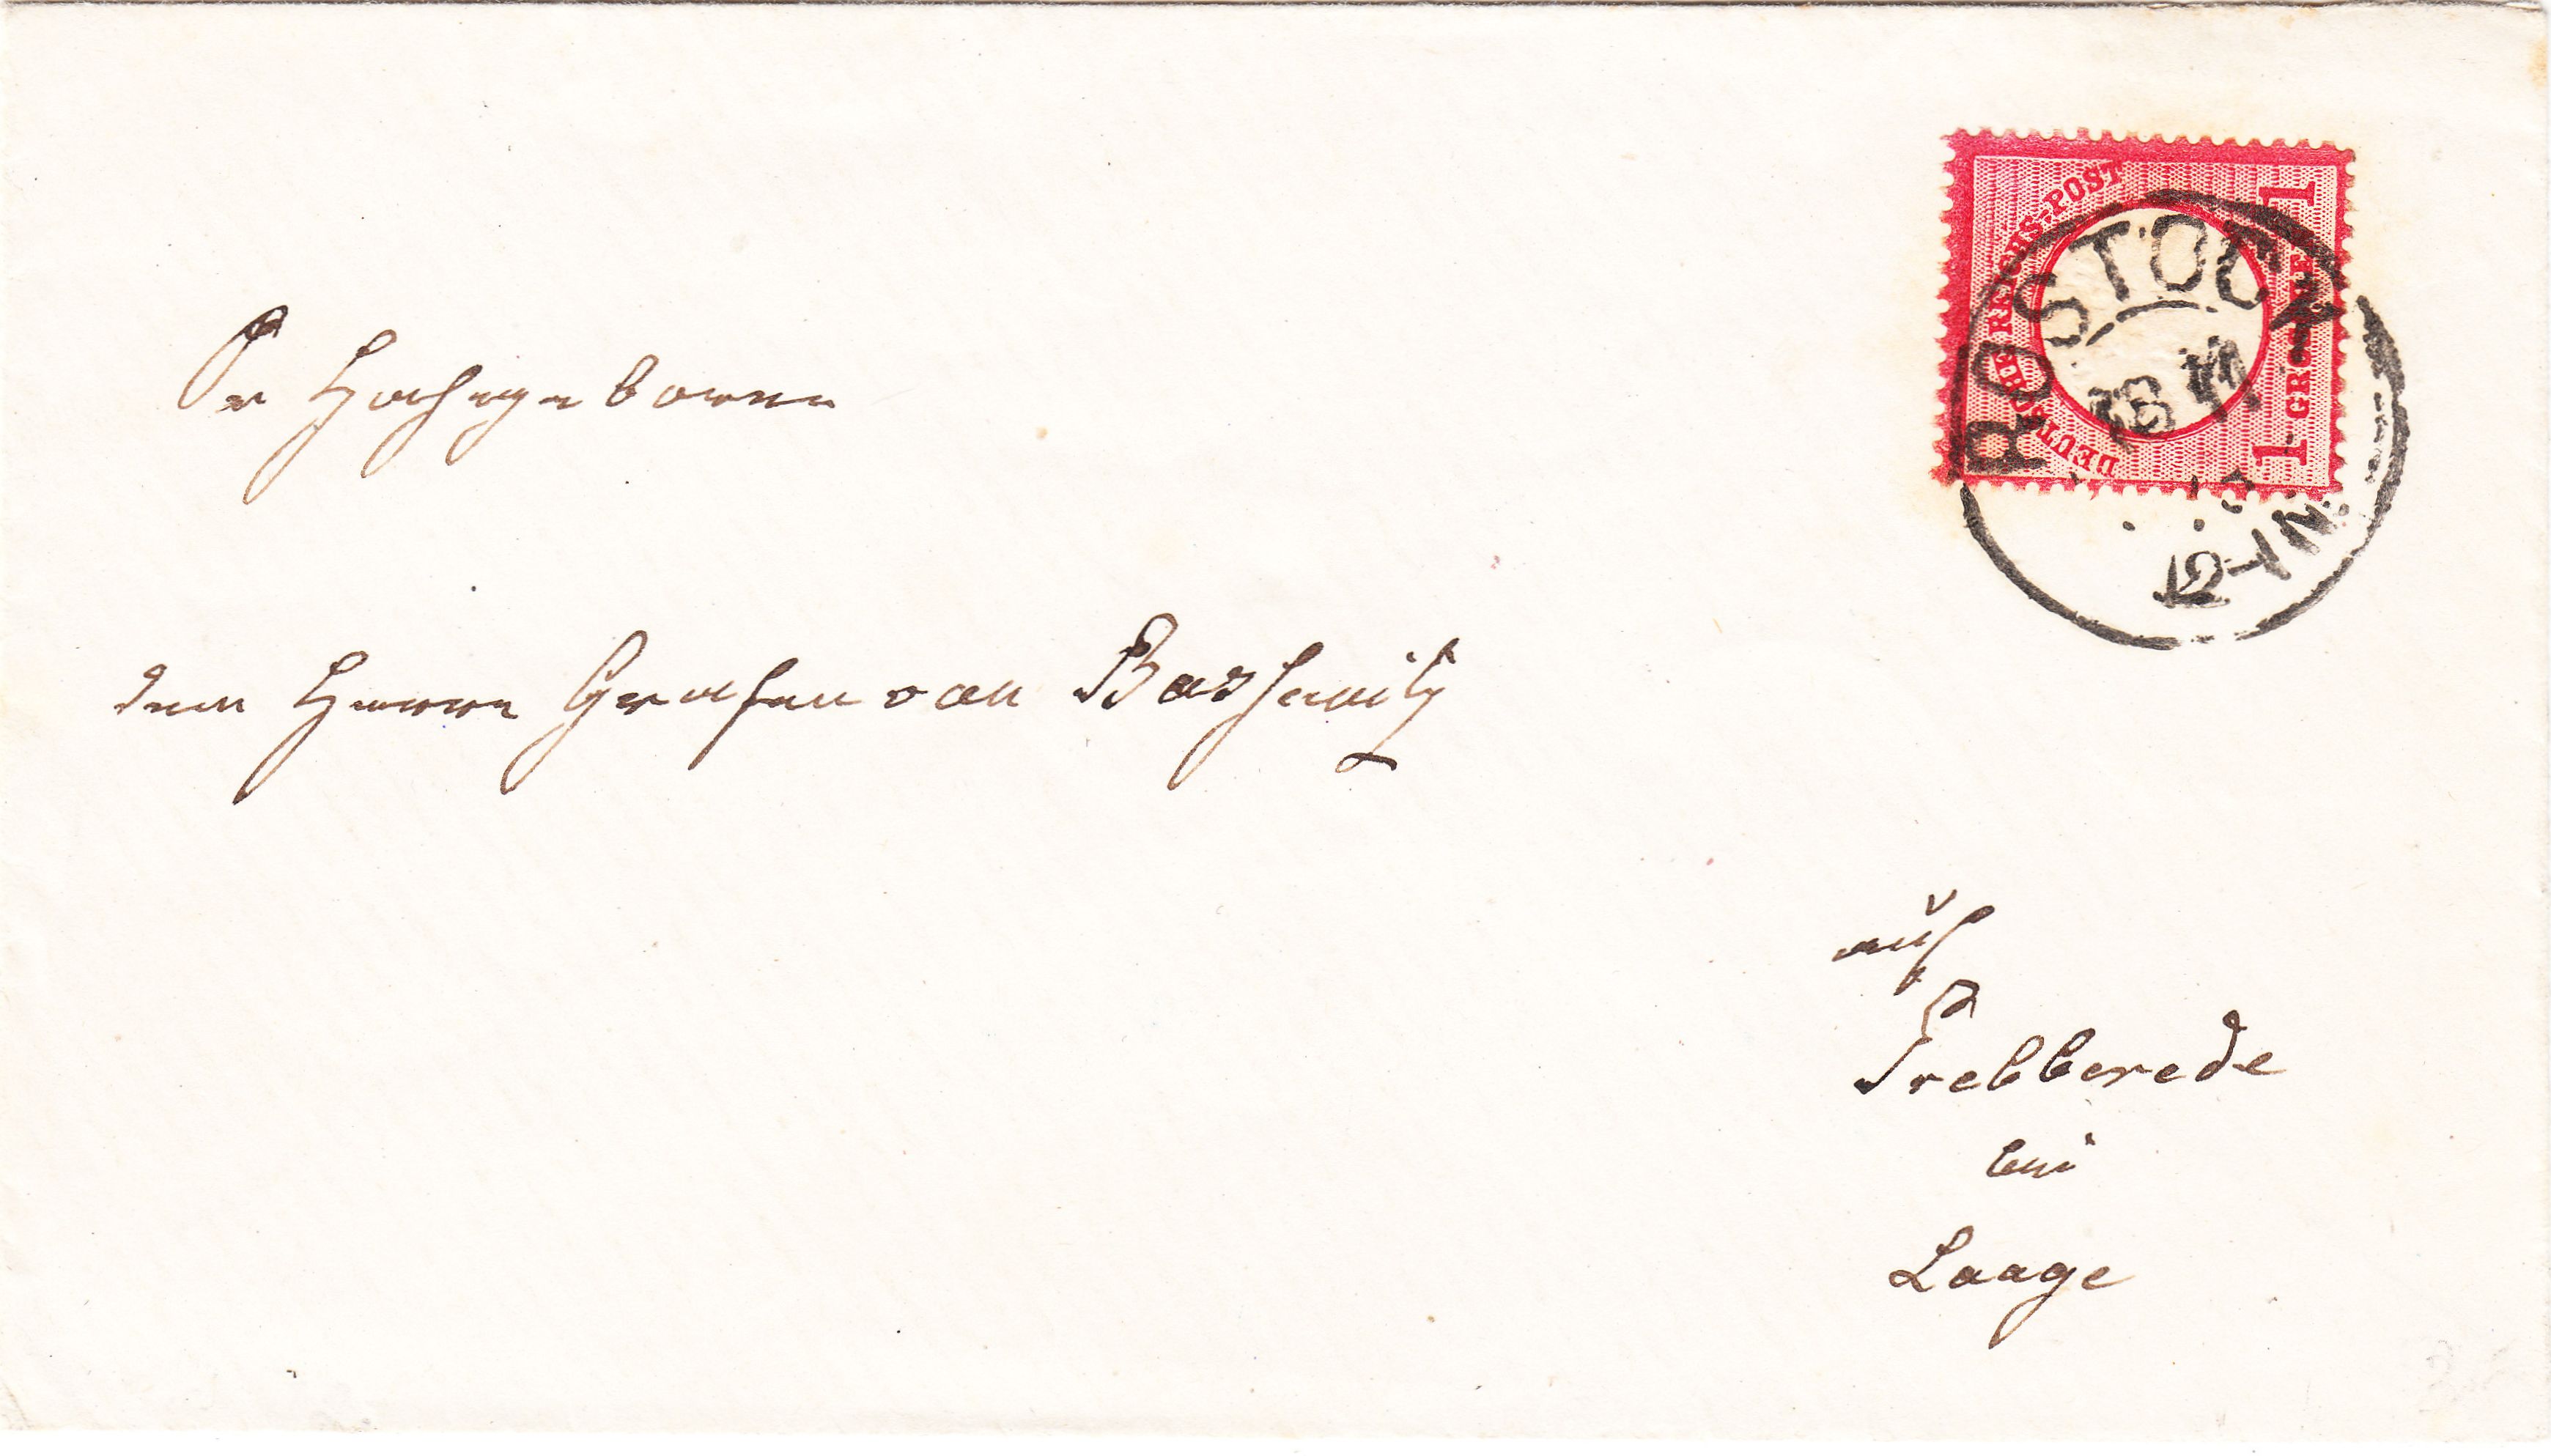 Sr Hochgeboren
dem Herrn Grafen von Bassewitz
auf
Trebberede
bei
Laage
DEUTSCHE REICHS-POST
1 GROSCHEN 1
ROSTOCK
12-1N.